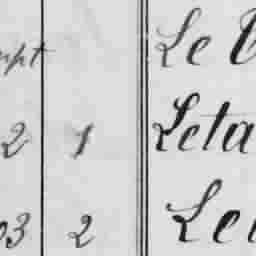 mpt Le
2 1 Leta
03 2 Le